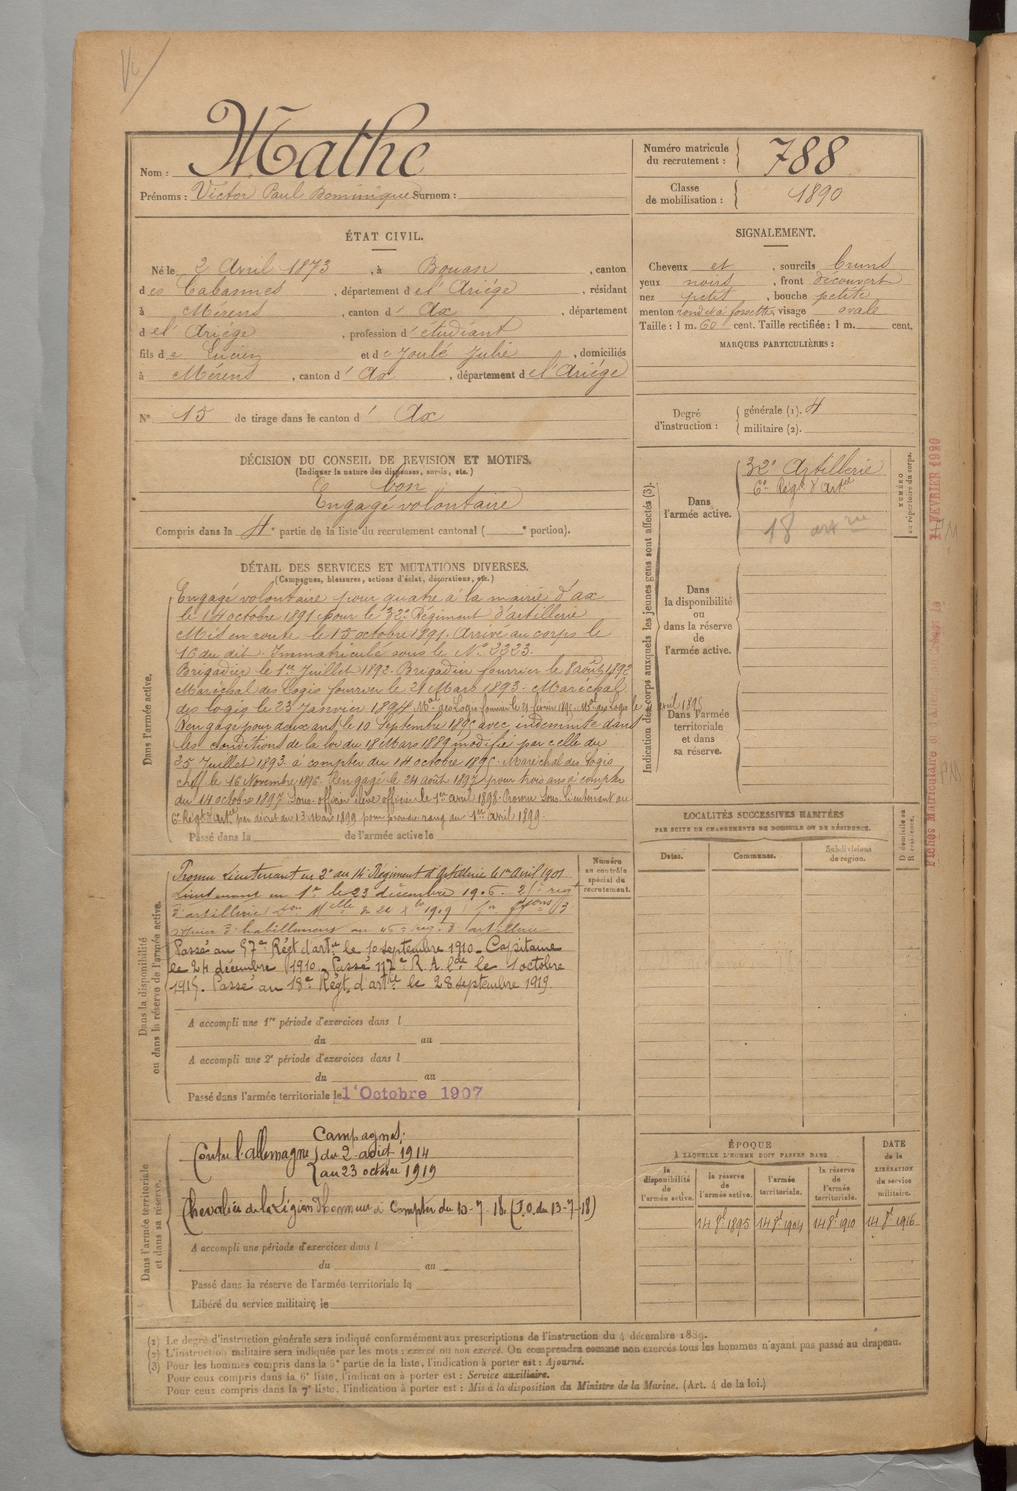 Nom : Mathe
Prénoms : Victor Paul Dominique Surnom :
Numéro matricule
du recrutement : 788
Classe
de mobilisation : 1890
ÉTAT CIVIL.
Né le 2 Avril 1873, à Bouan, canton
des Cabannes, département de l'Ariége, résidant
à Mérens, canton d'Ax, département
de l'Ariége, profession d'étudiant
fils de Lucien et de Joulé Julie, domiciliés
à Mérens, canton d'Ax, département de l'Ariége
N° 15 de tirage dans le canton d'Ax
SIGNALEMENT.
Cheveux et, sourcils bruns
yeux noirs, front découvert
nez petit, bouche petite
menton rond et à fossette, visage ovale
Taille : 1 m. 60 cent. Taille rectifiée : 1 m. cent.
MARQUES PARTICULIÈRES :
Degré
d'instruction :
générale (1). 4
militaire (2).
DÉCISION DU CONSEIL DE REVISION ET MOTIFS.
(Indiquer la nature des dispenses, sursis, etc.)
bon
Engagé volontaire
Compris dans la 4e partie de la liste du recrutement cantonal ( e portion).
DÉTAIL DES SERVICES ET MUTATIONS DIVERSES.
(Campagnes, blessures, actions d'éclat, décorations, etc.)
Dans l'armée active.
Engagé volontaire pour quatre à la mairie d'ax
le 14 octobre 1891 pour le 32e Régiment d'artillerie
Mis en route le 15 octobre 1891. Arrivé au corps le
16 du dit. Immatriculé sous le No 2323.
Brigadier le 1er Juillet 1892. Brigadier fourrier le 8 août 1892
Maréchal des Logis fourrier le 21 Mars 1893. Maréchal
des logis le 23 Janvier 1894 Mal des Logis fourrier le 21 février 1895 Mal des Logis le avril 1895
Rengagé pour deux ans le 10 Septembre 1895 avec indemnité dans
les conditions de la loi du 18 Mars 1889 modifié par celle du
25 Juillet 1893 à compter du 14 octobre 1895. Maréchal des Logis
chef le 16 Novembre 1896. Rengagé le 24 août 1897 pour trois ans à compter
du 14 octobre 1897 Sous-officier élève officier le 1er avril 1898. Promu Sous-lieutenant au
6e Régt d'artie par décret du 13 Mars 1899 pour prendre rang du 1er avril 1899.
Passé dans la de l'armée active le
Indication des corps auxquels les jeunes gens sont affectés (3).
Dans
l'armée active.
32e Artillerie
6e Régt d'Artie
18 artie
Dans
la disponibilité
ou
dans la réserve
de
l'armée active.
Dans l'armée
territoriale
et dans
sa réserve.
NUMÉRO
au répertoire du corps.
FÉVRIER 1920
LOCALITÉS SUCCESSIVES HABITÉES
PAR SUITE DE CHANGEMENTS DE DOMICILE OU DE RÉSIDENCE.
Dates.
Communes.
Subdivisions
de région.
D domicile ou
R résidence.
Dans la disponibilité
ou dans la réserve de l'armée active.
Numéro
au contrôle
spécial du
recrutement.
Promu Lieutenant en 2e au 14e Régiment d'Artillerie le 1er Avril 1901
Lieutenant en 1er le 23 décembre 1906.
Passé au 57e Régt d'artie le 10 septembre 1910 - Capitaine
le 24 décembre 1910. Passé 117e R. A. Lde le 1 octobre
1915. Passé au 18e Régt d'artie le 28 septembre 1919.
A accompli une 1re période d'exercices dans l
du au
A accompli une 2e période d'exercices dans l
du au
Passé dans l'armée territoriale le 1er Octobre 1907
Dans l'armée territoriale
et dans sa réserve.
Campagnes:
Contre l'allemagne du 2 août 1914
au 23 octobre 1919
Chevalier de la Légion d'Honneur à compter du 10-7-18 (J.O. du 13-7-18)
A accompli une période d'exercices dans l
du au
Passé dans la réserve de l'armée territoriale le
Libéré du service militaire le
ÉPOQUE
À LAQUELLE L'HOMME DOIT PASSER DANS
la
disponibilité
de
l'armée active.
la réserve
de
l'armée active.
l'armée
territoriale.
la réserve
de
l'armée
territoriale.
DATE
de la
LIBÉRATION
du service
militaire.
14 8e 1895 14 8e 1904 14 8e 1910 14 8e 1916
(1) Le degré d'instruction générale sera indiqué conformément aux prescriptions de l'instruction du 4 décembre 1889.
(2) L'instruction militaire sera indiquée par les mots : exercé ou non exercé. On comprendra comme non exercés tous les hommes n'ayant pas passé au drapeau.
(3) Pour les hommes compris dans la 5e partie de la liste, l'indication à porter est : Ajourné.
Pour ceux compris dans la 6e liste, l'indication à porter est : Service auxiliaire.
Pour ceux compris dans la 7e liste, l'indication à porter est : Mis à la disposition du Ministre de la Marine. (Art. 4 de la loi.)